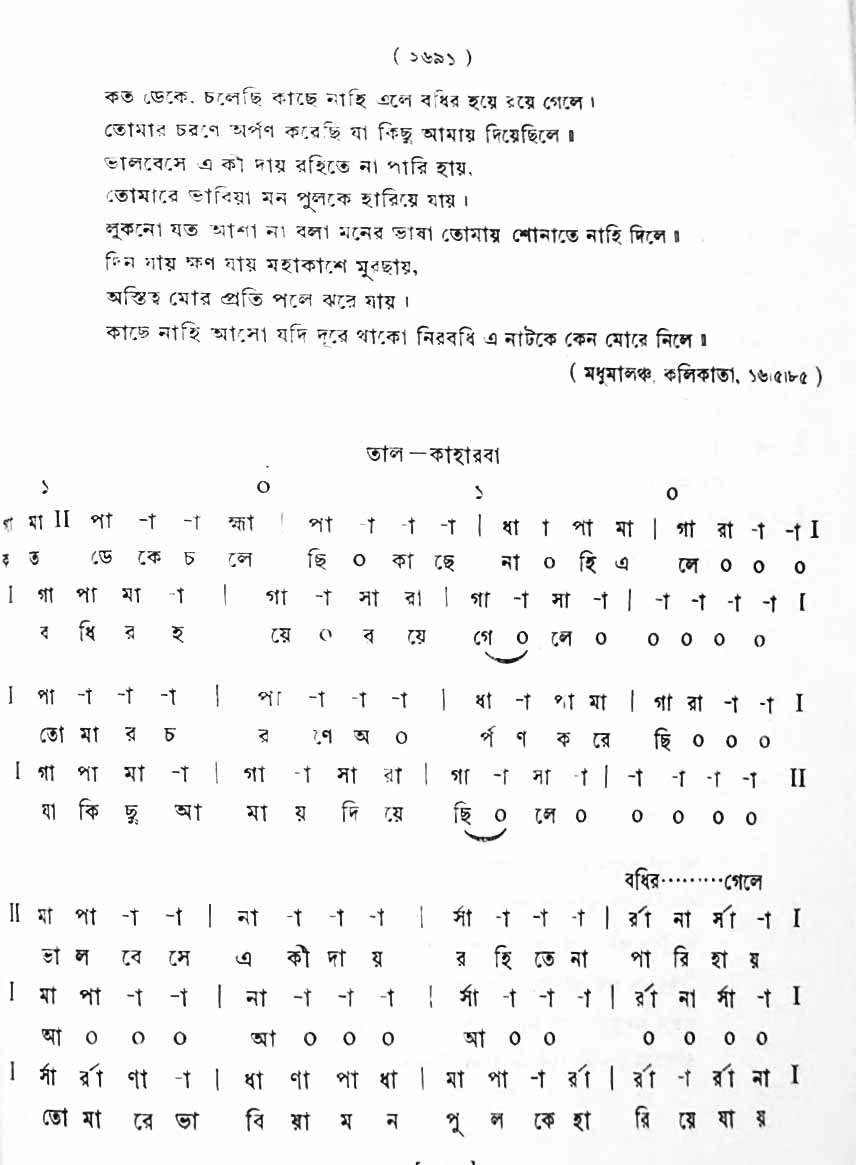 ( ১৬৯১ )
কত ডেকে. চলেছি কাছে নাহি এলে বধির হয়ে রয়ে গেলে ।
তোমার চরণে অর্পণ করেছি যা কিছু আমায় দিয়েছিলে ॥
ভালবেসে এ কী দায় রহিতে না পারি হায়,
তোমারে ভাবিয়া মন পুলকে হারিয়ে যায় ।
লুকনো যত আশা না বলা মনের ভাষা তোমায় শোনাতে নাহি দিলে ॥
দিন যায় ক্ষণ যায় মহাকাশে মূরছায়,
অস্তিত্ব মোর প্রতি পলে ঝরে যায় ।
কাছে নাহি আসো যদি দূরে থাকো নিরবধি এ নাটকে কেন মোরে নিলে ॥
( মধুমালঞ্চ, কলিকাতা, ১৬।৫।৮৫ )
তাল – কাহারবা
১ ০ ১ ০
গা মা II পা -া -া হ্মা | পা -া -া -া | ধা া পা মা | গা রা -া -া I
ক ত ডে কে চ লে ছি ০ কা ছে না ০ হি এ লে ০ ০ ০
I গা পা মা -া | গা -া সা রা | গা -া সা -া | -া -া -া -া I
ব ধি র হ য়ে ০ র য়ে গে ০ লে ০ ০ ০ ০ ০
I পা -া -া -া | পা -া -া -া | ধা -া পা মা | গা রা -া -া I
তো মা র চ র ণে অ ০ র্প ণ ক রে ছি ০ ০ ০
I গা পা মা -া | গা -া সা রা | গা -া সা -া | -া -া -া -া II
যা কি ছু আ মা য় দি য়ে ছি ০ লে ০ ০ ০ ০ ০
বধির·········গেলে
II মা পা -া -া | না -া -া -া | র্সা -া -া -া | র্রা না র্সা -া I
ভা ল বে সে এ কী দা য় র হি তে না পা রি হা য়
I মা পা -া -া | না -া -া -া | র্সা -া -া -া | র্রা না র্সা -া I
আ ০ ০ ০ আ ০ ০ ০ আ ০ ০ ০ ০ ০ ০
I র্সা র্রা ণা -া | ধা ণা পা ধা | মা পা -া র্রা | র্রা -া র্রা না I
তো মা রে ভা বি য়া ম ন পু ল কে হা রি য়ে যা য়